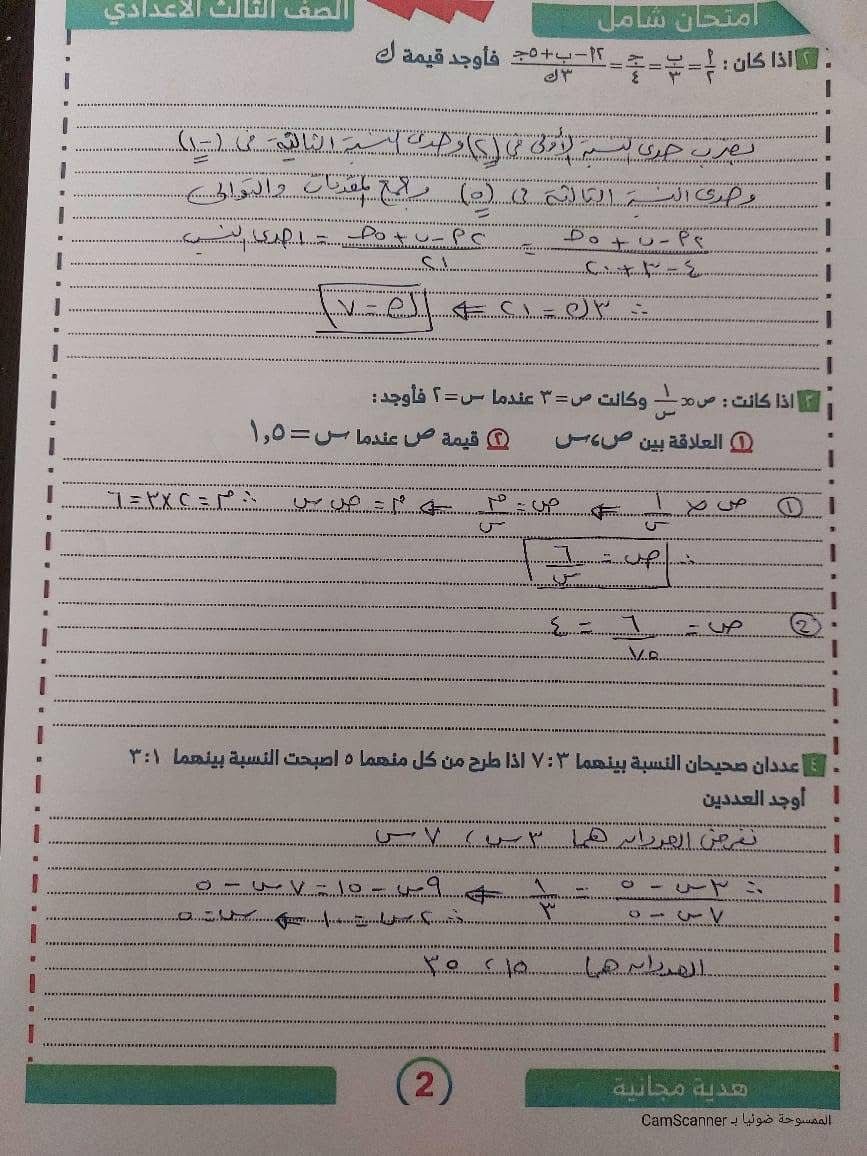 امتحان شامل
الصف الثالث الاعدادي
٢ اذا كان : أ/٢ = ب/٣ = ج/٤ = (٢أ - ب + ٥ج)/(٣ك) فأوجد قيمة ك
بضرب حدى النسبة الأولى فى (٢) وحدى النسبة الثانية فى (-١)
وحدى النسبة الثالثة فى (٥) وجمع المقدمات والتوالى
(٢أ - ب + ٥ج)/(٤ - ٣ + ٢٠) = (٢أ - ب + ٥ج)/٢١ = احدى النسب
∴ ٣ك = ٢١ ⇐ ك = ٧
٣ اذا كانت : ص ∝ ١/س وكانت ص = ٣ عندما س = ٢ فأوجد :
١ العلاقة بين ص ، س ٢ قيمة ص عندما س = ١,٥
① ص ∝ ١/س ⇐ ص = م/س ⇐ م = ص س ∴ م = ٢×٣ = ٦
∴ ص = ٦/س
② ص = ٦/١,٥ = ٤
٤ عددان صحيحان النسبة بينهما ٣ : ٧ اذا طرح من كل منهما ٥ اصبحت النسبة بينهما ١ : ٣
أوجد العددين
نفرض العددان هما ٣س ، ٧س
∴ (٣س - ٥)/(٧س - ٥) = ١/٣ ⇐ ٩س - ١٥ = ٧س - ٥
∴ ٢س = ١٠ ⇐ س = ٥
العددان هما ١٥ ، ٣٥
هدية مجانية
2
الممسوحة ضوئيا بـ CamScanner